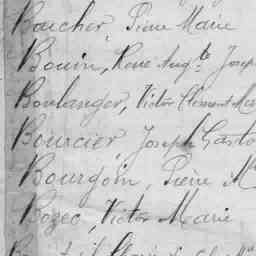 Boucher, Pierre Marie
Bouin, René Aug.te Josep
Boulanger, Victor Clément Mar
Bourcier, Joseph Gasto
Bourgoin, Pierre M
Bozec, Victor Marie